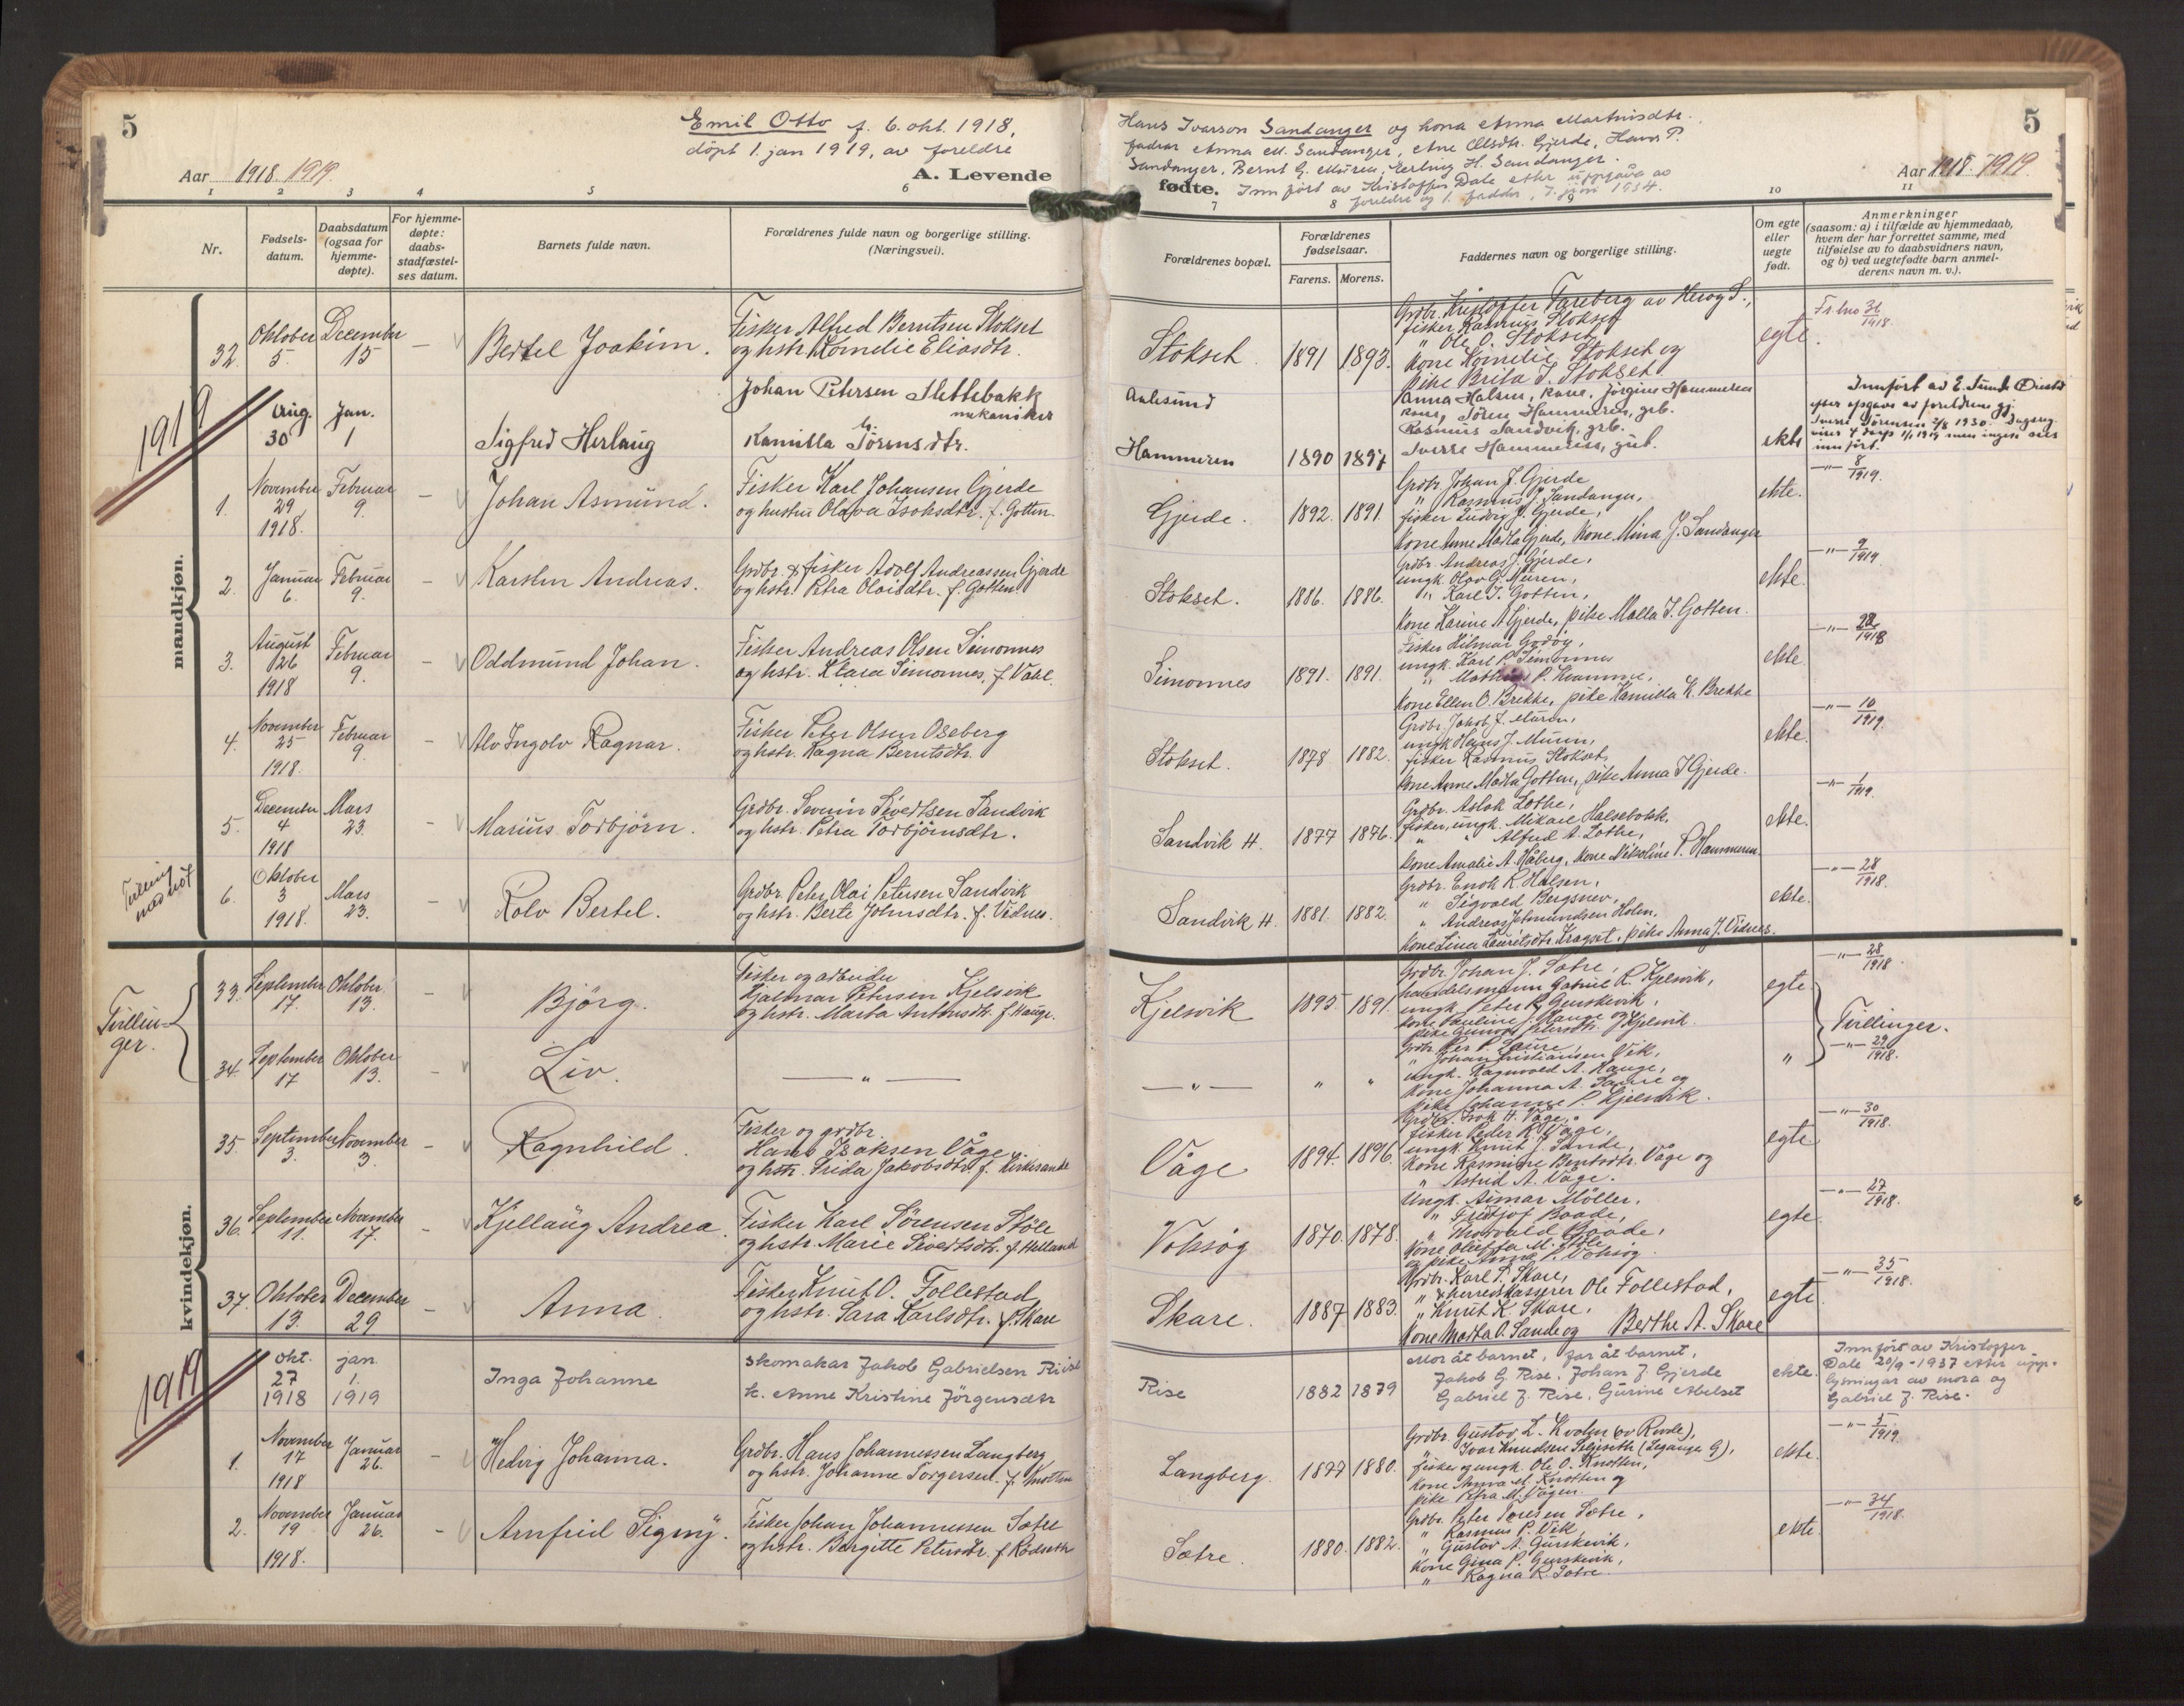 5
Emil Otto f. 6. okt. 1918,
døpt 1. jan 1919, av foreldre
Aar 1918. 1919.
A. Levende
1 2 3 4 5 6
Nr.
Fødsels-
datum.
Daabsdatum
(ogsaa for
hjemme-
døpte).
For hjemme-
døpte:
daabs-
stadfæstel-
ses datum.
Barnets fulde navn.
Forældrenes fulde navn og borgerlige stilling.
(Næringsvei).
mandkjøn.
32. Oktober 5. December 15 – Bertel Joakim. Fisker Alfred Berntsen Stokset
og hstr. Kornelie Eliasdtr.
1919
Aug. 30 Jan. 1 Sigfred Herlaug Johan Petersen Slettebakk
mekaniker
h.
Kamilla Sørensdtr.
1. November 29 1918. Februar 9. – Johan Asmund. Fisker Karl Johansen Gjerde
og hustru Olava Isaksdtr. f. Gotten.
2. Januar 6. Februar 9. – Karsten Andreas. Grdbr. & fisker Adolf Andreassen Gjerde
og hstr. Petra Olaisdtr. f. Gotten.
3. August 26 1918 Februar 9. – Oddmund Johan. Fisker Andreas Olsen Simonnes
og hstr. Klara Simonnes, f. Vaal.
4. November 25 1918. Februar 9. – Alv Ingolv Ragnar. Fisker Peter Olsen Oseberg
og hstr. Ragna Berntsdtr.
5. December 4 1918 Mars 23. – Marius Torbjørn. Grdbr. Severin Sivertsen Sandvik
og hstr. Petra Torbjørnsdtr.
Tvilling
med no 1
6. Oktober 3 1918. Mars 23. – Rolv Bertel. Grdbr. Peter Olai Petersen Sandvik
og hstr. Berte Johnsdtr. f. Vidnes.
kvindekjøn.
Tvillin-
ger.
33. September 17. Oktober 13. – Bjørg. Fisker og arbeider
Hjalmar Petersen Kjelsvik
og hstr. Marta Antonsdtr. f. Hauge.
34. September 17 Oktober 13. – Liv. — " —
35. September 3. November 3. – Ragnhild. Fisker og grdbr.
Hans Isaksen Våge
og hstr. Frida Jakobsdtr. f. Kirkesande
36. September 11. November 17. – Kjellaug Andrea. Fisker Karl Sørensen Støle
og hstr. Marie Sivertsdtr. f. Helland
37. Oktober 13. December 29 – Anna. Fisker Knut O. Follestad
og hstr. Sara Karlsdtr. f. Skare
1919
okt. 27 1918 jan. 1. 1919 Inga Johanne Skomakar Jakob Gabrielsen Riise
h. Anne Kristine Jörgensdtr
1. November 17 1918 Januar 26. – Hedvig Johanna. Grdbr. Hans Johannessen Langberg
og hstr. Johanne Torgersen. f. Knotten
2. November 19 1918. Januar 26. – Arnfrid Signy. Fisker Johan Johannessen Sætre
og hstr. Bergitte Petersdtr. f. Rødseth
5
Hans Ivarson Sandanger og kona Anna Martinisdtr.
fadrar Anna M. Sandanger, Ane Olsdtr. Gjerde, Hans P.
Sandanger, Bernt G. Mûren, Erling H. Sandanger.
fødte. Innført av Kristoffer Dale etter uppgåva av
foreldre og 1. fadder, 7. juni 1934.
Aar 1918. 1919.
7 8 9 10 11
Forældrenes bopæl.
Forældrenes
fødselsaar.
Farens. Morens.
Faddernes navn og borgerlige stilling.
Om egte
eller
uegte
født.
Anmerkninger
(saasom: a) i tilfælde av hjemmedaab,
hvem der har forrettet samme, med
tilføielse av to daabsvidners navn,
og b) ved uegtefødte barn anmel-
derens navn m. v.).
Stokset. 1891 1893. Grdbr. Kristoffer Tareberg av Herøy S.,
fisker Rasmus Stokset
" Ole O. Stokset
kone Kornelie Stokset og
pike Brita J. Stokset
egte. 36/1918.
Aalesund
Hammeren 1890 1897 Anna Halsen, kone, Jørgine Hammeren
kone, Søren Hammeren, grb.
Rasmus Sandvik, grb.
Sverre Hammeren, gut.
ekte
Innført av
efter opgave av foreldrene gj.
Sverre Sørensen 2/8 1930.
innført.
Gjerde. 1892. 1891. Grdbr. Johan J. Gjerde
" Rasmus J. Sandanger,
fisker Ludvig J. Gjerde,
kone Anne Marta Gjerde, kone Mina J. Sandanger
ekte. –"– 8/1919.
Stokset. 1886. 1886. Grdbr. Andreas J. Gjerde,
ungk. Olav G. Muren,
" Karl I. Gotten,
kone Karine A. Gjerde, pike Malla I. Gotten.
ekte. –"– 9/1919
Simonnes 1891. 1891. Fisker Hilmar Godøy,
ungk. Karl P. Simonnes
" Mathias P. Kvamme,
kone Ellen O. Brekke, pike Kamilla K. Brekke
ekte. –"– 22/1918
Stokset. 1878. 1882. Grdbr. Jakob L. Muren,
ungk. Hans J. Muren,
fisker Rasmus Stokset,
kone Anne Marta Gotten, pike Anna J. Gjerde.
ekte. –"– 10/1919.
Sandvik H. 1877 1876. Grdbr. Aslak Lothe,
fisker, ungk. Mikael Halsebakk,
" Alfred A. Lothe,
kone Amalie A. Håberg, kone Nikoline P. Hammeren.
ekte. –"– 1/1919.
Sandvik H. 1881. 1882. Grdbr. Enok R. Halsen,
" Sigvald Bergsnev,
" Andreas Jetmundsen Holm,
kone Lina Lauritsdtr. Kragset, pike Anna J. Vidnes.
ekte. –"– 28/1918.
Kjelsvik 1895. 1891. Grdbr. Johan J. Sætre,
handelsmann Gabriel R. Kjelsvik,
ungk. Peter R. Gurskevik,
kone Pauline J. Hauge og
pike Gunora Petersdtr. Kjelsvik.
egte. –"– 28/1918.
Tvillinger.
— " — " " Grdbr. Per P. Saure,
" Johan Kristiansen Vik,
ungk. Ragnvald A. Hauge,
kone Johanna A. Saure og
pike Johanne P. Kjelsvik.
" –"– 29/1918.
Våge 1894. 1896. Grdbr. Isak H. Våge,
fisker Peder R. Våge,
ungk. Knut J. Sande,
kone Rasmine Berntsdtr. Våge og
" Astrid A. Våge.
egte –"– 30/1918.
Voksøg 1870. 1878. Ungk. Aimar Möller,
" Fridtjof Baade,
" Thorvald Baade,
kone Oluffa M. Støle
og pike Anna P. Voksøg.
egte. –"– 27/1918.
Skare. 1887. 1883. Grdbr. Karl P. Skare,
" & herredskasserer Ole Follestad,
" Knut K. Skare,
kone Marta O. Sande og Berthe A. Skare
egte. –"– 35/1918.
Rise 1882 1879 Mor åt barnet, far åt barnet,
Jakob G. Rise, Johan J. Gjerde
Gabriel J. Rise, Gurine Abelset
ekte. Innført av Kristoffer
Dale 20/9 - 1937 etter upp-
lysningar av mora og
Gabriel J. Rise.
Langberg. 1877 1880. Grdbr. Gustav L. Kvalen (av Rovde),
" Ivar Knudsen Seljeseth (Leganger G),
fisker og ungk. Ole O. Knotten,
kone Anna M. Knotten og
pike Petra M. Vågen.
ekte. –"– 5/1919.
Sætre. 1880. 1882. Grdbr. Peter Toresen Sætre,
" Rasmus P. Vik,
" Gustav A. Gurskevik,
kone Gina P. Gurskevik,
" Ragna R. Sætre.
ekte. –"– 34/1918.